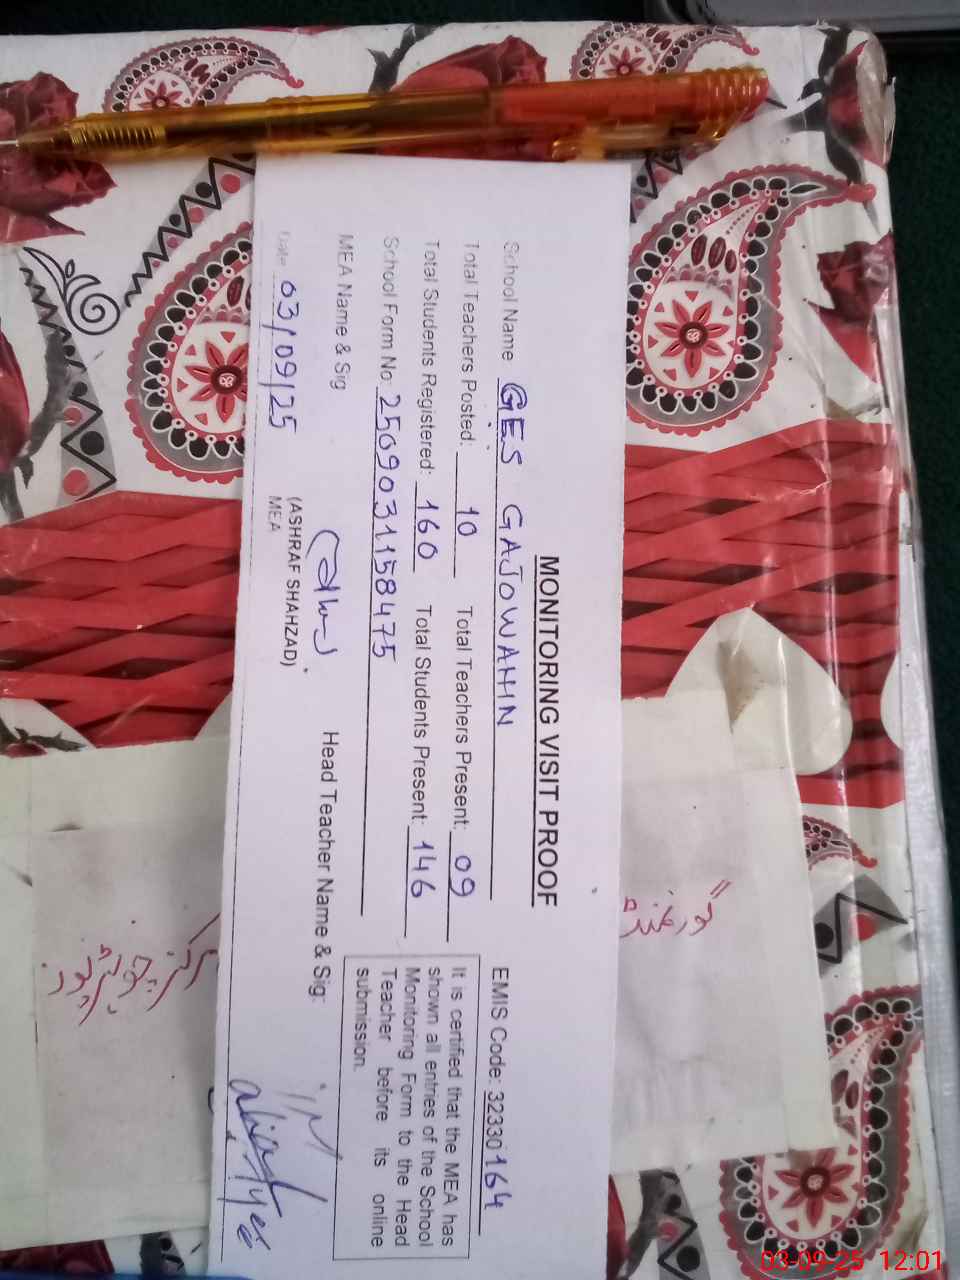 MONITORING VISIT PROOF
School Name GES GAJOWAHN EMIS Code: 32330164
Total Teachers Posted: 10 Total Teachers Present: 09
Total Students Registered: 160 Total Students Present: 146
School Form No. 2509031158475
It is certified that the MEA has
shown all entries of the School
Monitoring Form to the Head
Teacher before its online
submission.
MEA Name & Sig Head Teacher Name & Sig:
(ASHRAF SHAHZAD)
MEA
Date 03/09/25
03-09-25 12:01